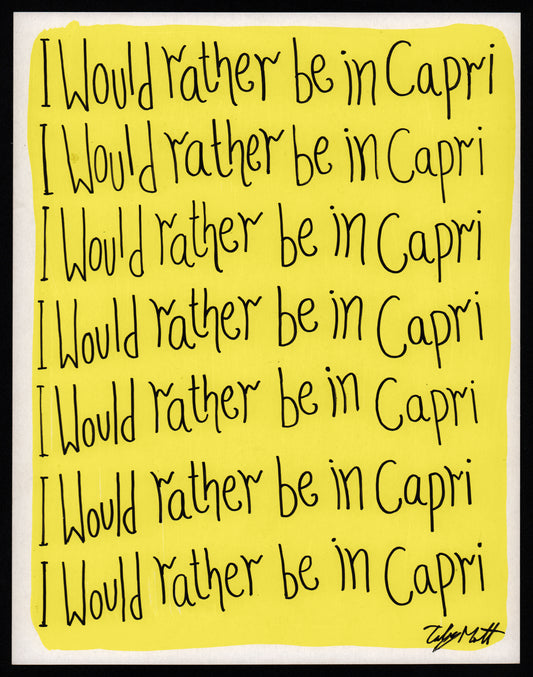 I Would rather be in Capri
I Would rather be in Capri
I Would rather be in Capri
I Would rather be in Capri
I Would rather be in Capri
I Would rather be in Capri
I Would rather be in Capri